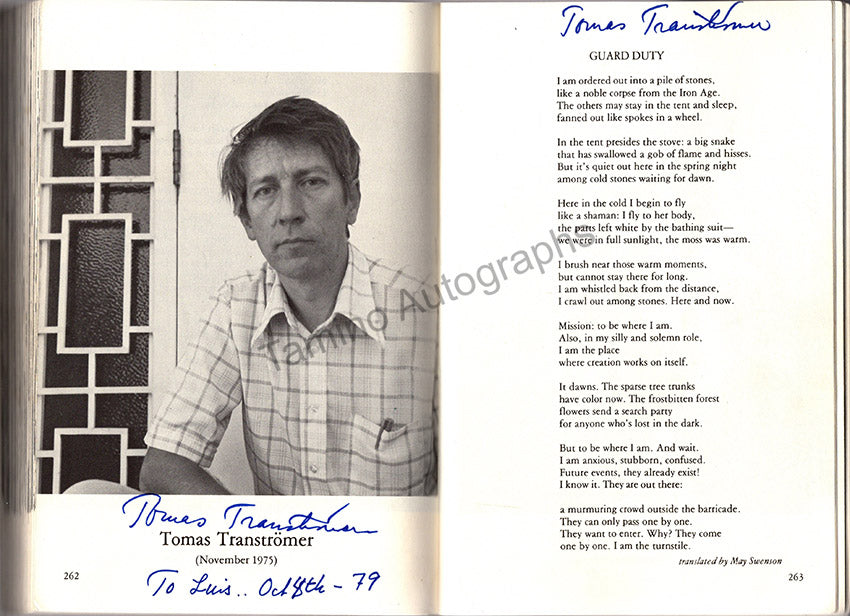 Tomas Tranströmer
Tomas Tranströmer
(November 1975)
To Luis.. Oct 8th - 79
262
Tomas Tranströmer
GUARD DUTY
I am ordered out into a pile of stones,
like a noble corpse from the Iron Age.
The others may stay in the tent and sleep,
fanned out like spokes in a wheel.
In the tent presides the stove: a big snake
that has swallowed a gob of flame and hisses.
But it's quiet out here in the spring night
among cold stones waiting for dawn.
Here in the cold I begin to fly
like a shaman: I fly to her body,
the parts left white by the bathing suit—
we were in full sunlight, the moss was warm.
I brush near those warm moments,
but cannot stay there for long.
I am whistled back from the distance,
I crawl out among stones. Here and now.
Mission: to be where I am.
Also, in my silly and solemn role,
I am the place
where creation works on itself.
It dawns. The sparse tree trunks
have color now. The frostbitten forest
flowers send a search party
for anyone who's lost in the dark.
But to be where I am. And wait.
I am anxious, stubborn, confused.
Future events, they already exist!
I know it. They are out there:
a murmuring crowd outside the barricade.
They can only pass one by one.
They want to enter. Why? They come
one by one. I am the turnstile.
translated by May Swenson
263
Tamino Autographs